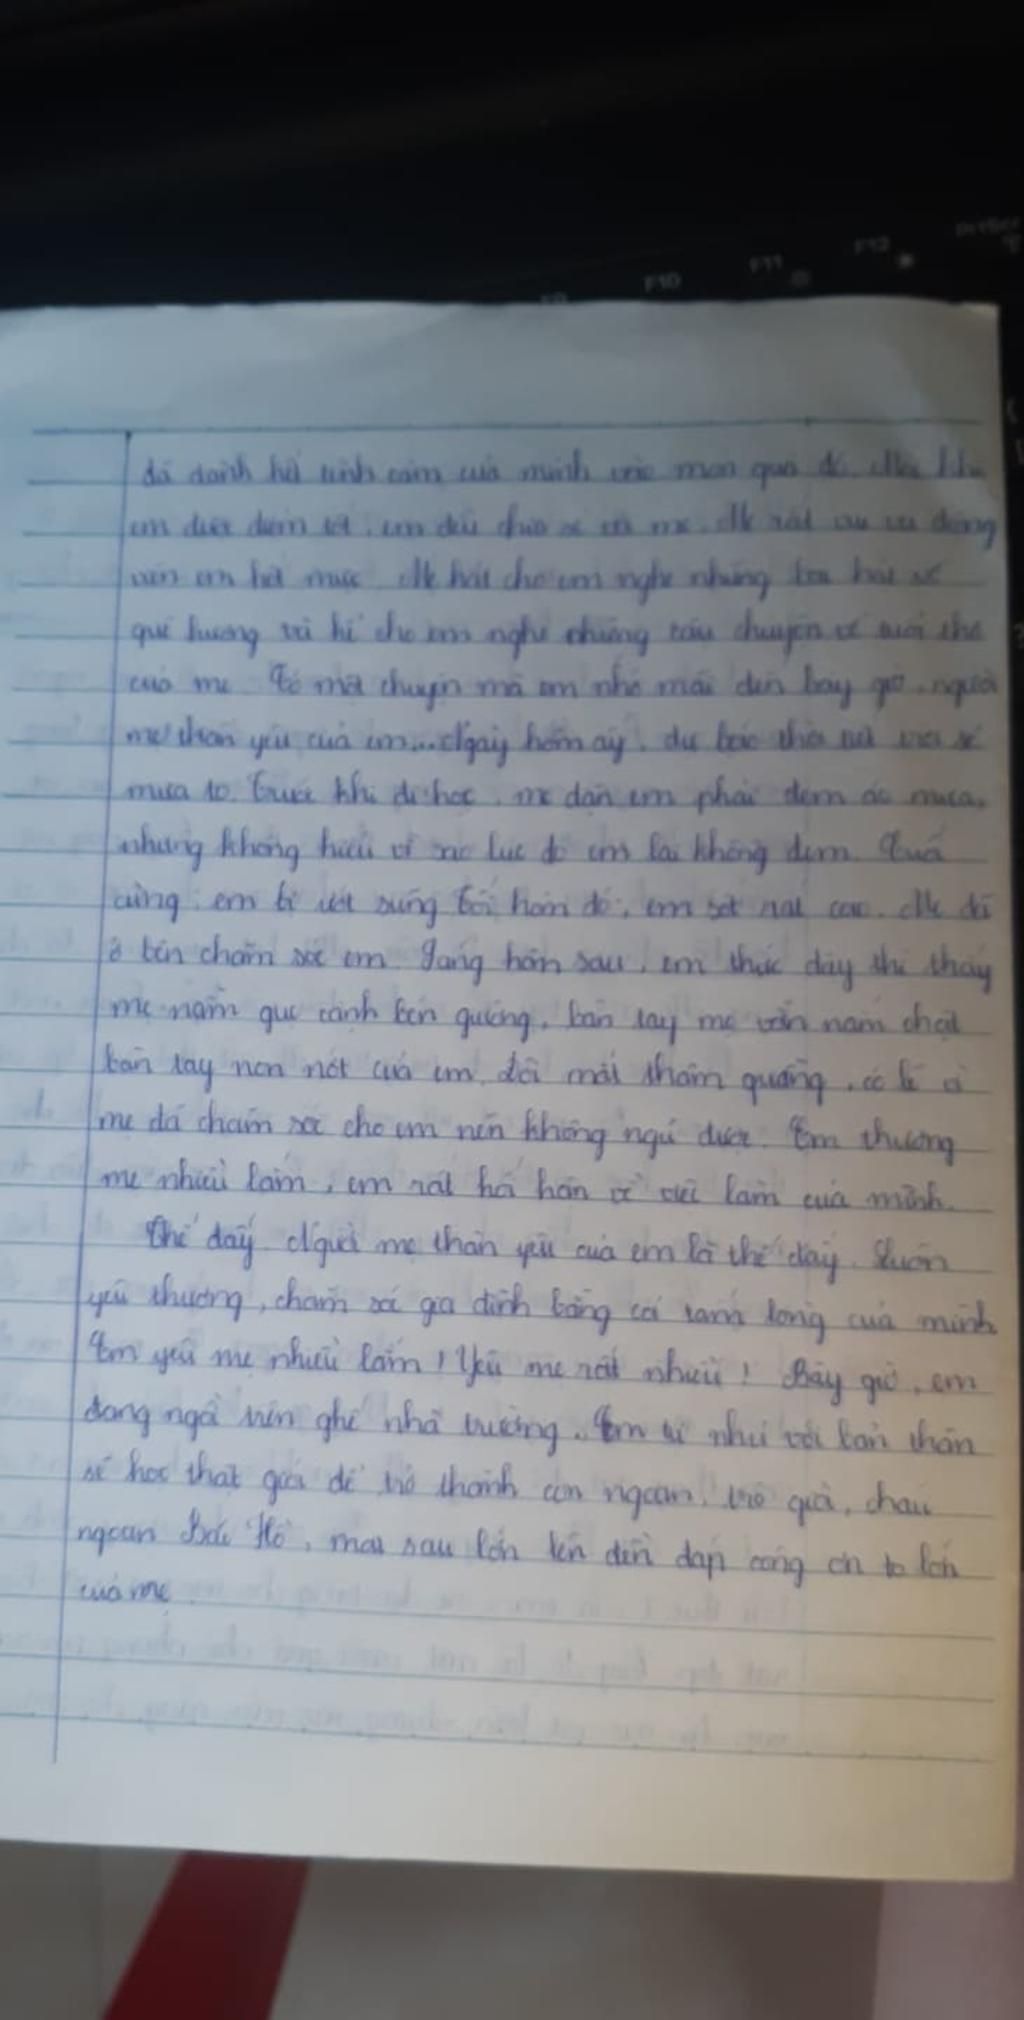 F10 F11 F12 PrtScr
đã dành hết tình cảm của mình vào món quà đó. Mỗi khi
em được điểm tốt, em đều chia sẻ với mẹ. Mẹ rất vui và động
viên em hết mực. Mẹ hát cho em nghe những bài hát về
quê hương và kể cho em nghe những câu chuyện về tuổi thơ
của mẹ. Có một chuyện mà em nhớ mãi đến bây giờ, người
mẹ thân yêu của em... Ngày hôm ấy, dự báo thời tiết trời sẽ
mưa to. Trước khi đi học, mẹ dặn em phải đem áo mưa,
nhưng không hiểu vì sao lúc đó em lại không đem. Cuối
cùng em bị ướt sũng. Tối hôm đó, em sốt rất cao. Mẹ đã
ở bên chăm sóc em. Sáng hôm sau, em thức dậy thì thấy
mẹ nằm gục cạnh bên giường, bàn tay mẹ vẫn nắm chặt
bàn tay non nớt của em, đôi mắt thâm quầng, có lẽ vì
mẹ đã chăm sóc cho em nên không ngủ được. Em thương
mẹ nhiều lắm, em rất hối hận về việc làm của mình.
Thế đấy. Người mẹ thân yêu của em là thế đấy. Luôn
yêu thương, chăm sóc gia đình bằng cả tấm lòng của mình.
Em yêu mẹ nhiều lắm! Yêu mẹ rất nhiều! Bây giờ, em
đang ngồi trên ghế nhà trường. Em tự nhủ với bản thân
sẽ học thật giỏi để trở thành con ngoan, trò giỏi, cháu
ngoan Bác Hồ, mai sau lớn lên đền đáp công ơn to lớn
của mẹ.